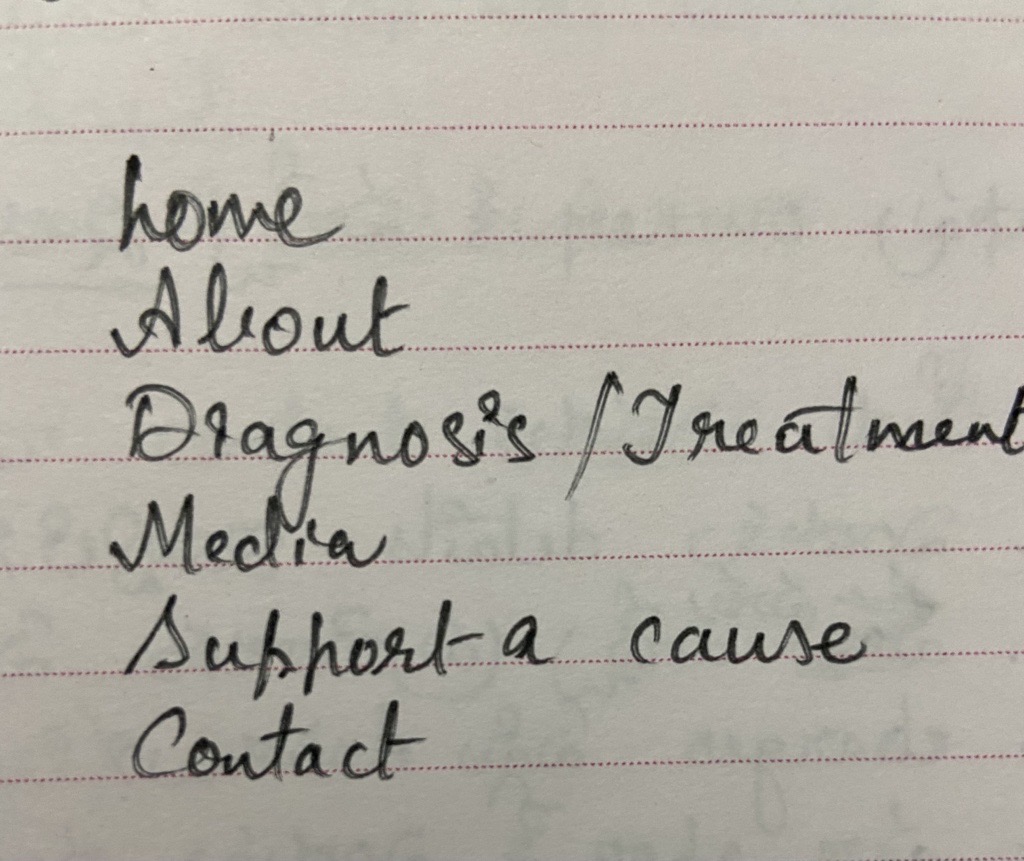 home
About
Diagnosis / Treatment
Media
Support a cause
Contact